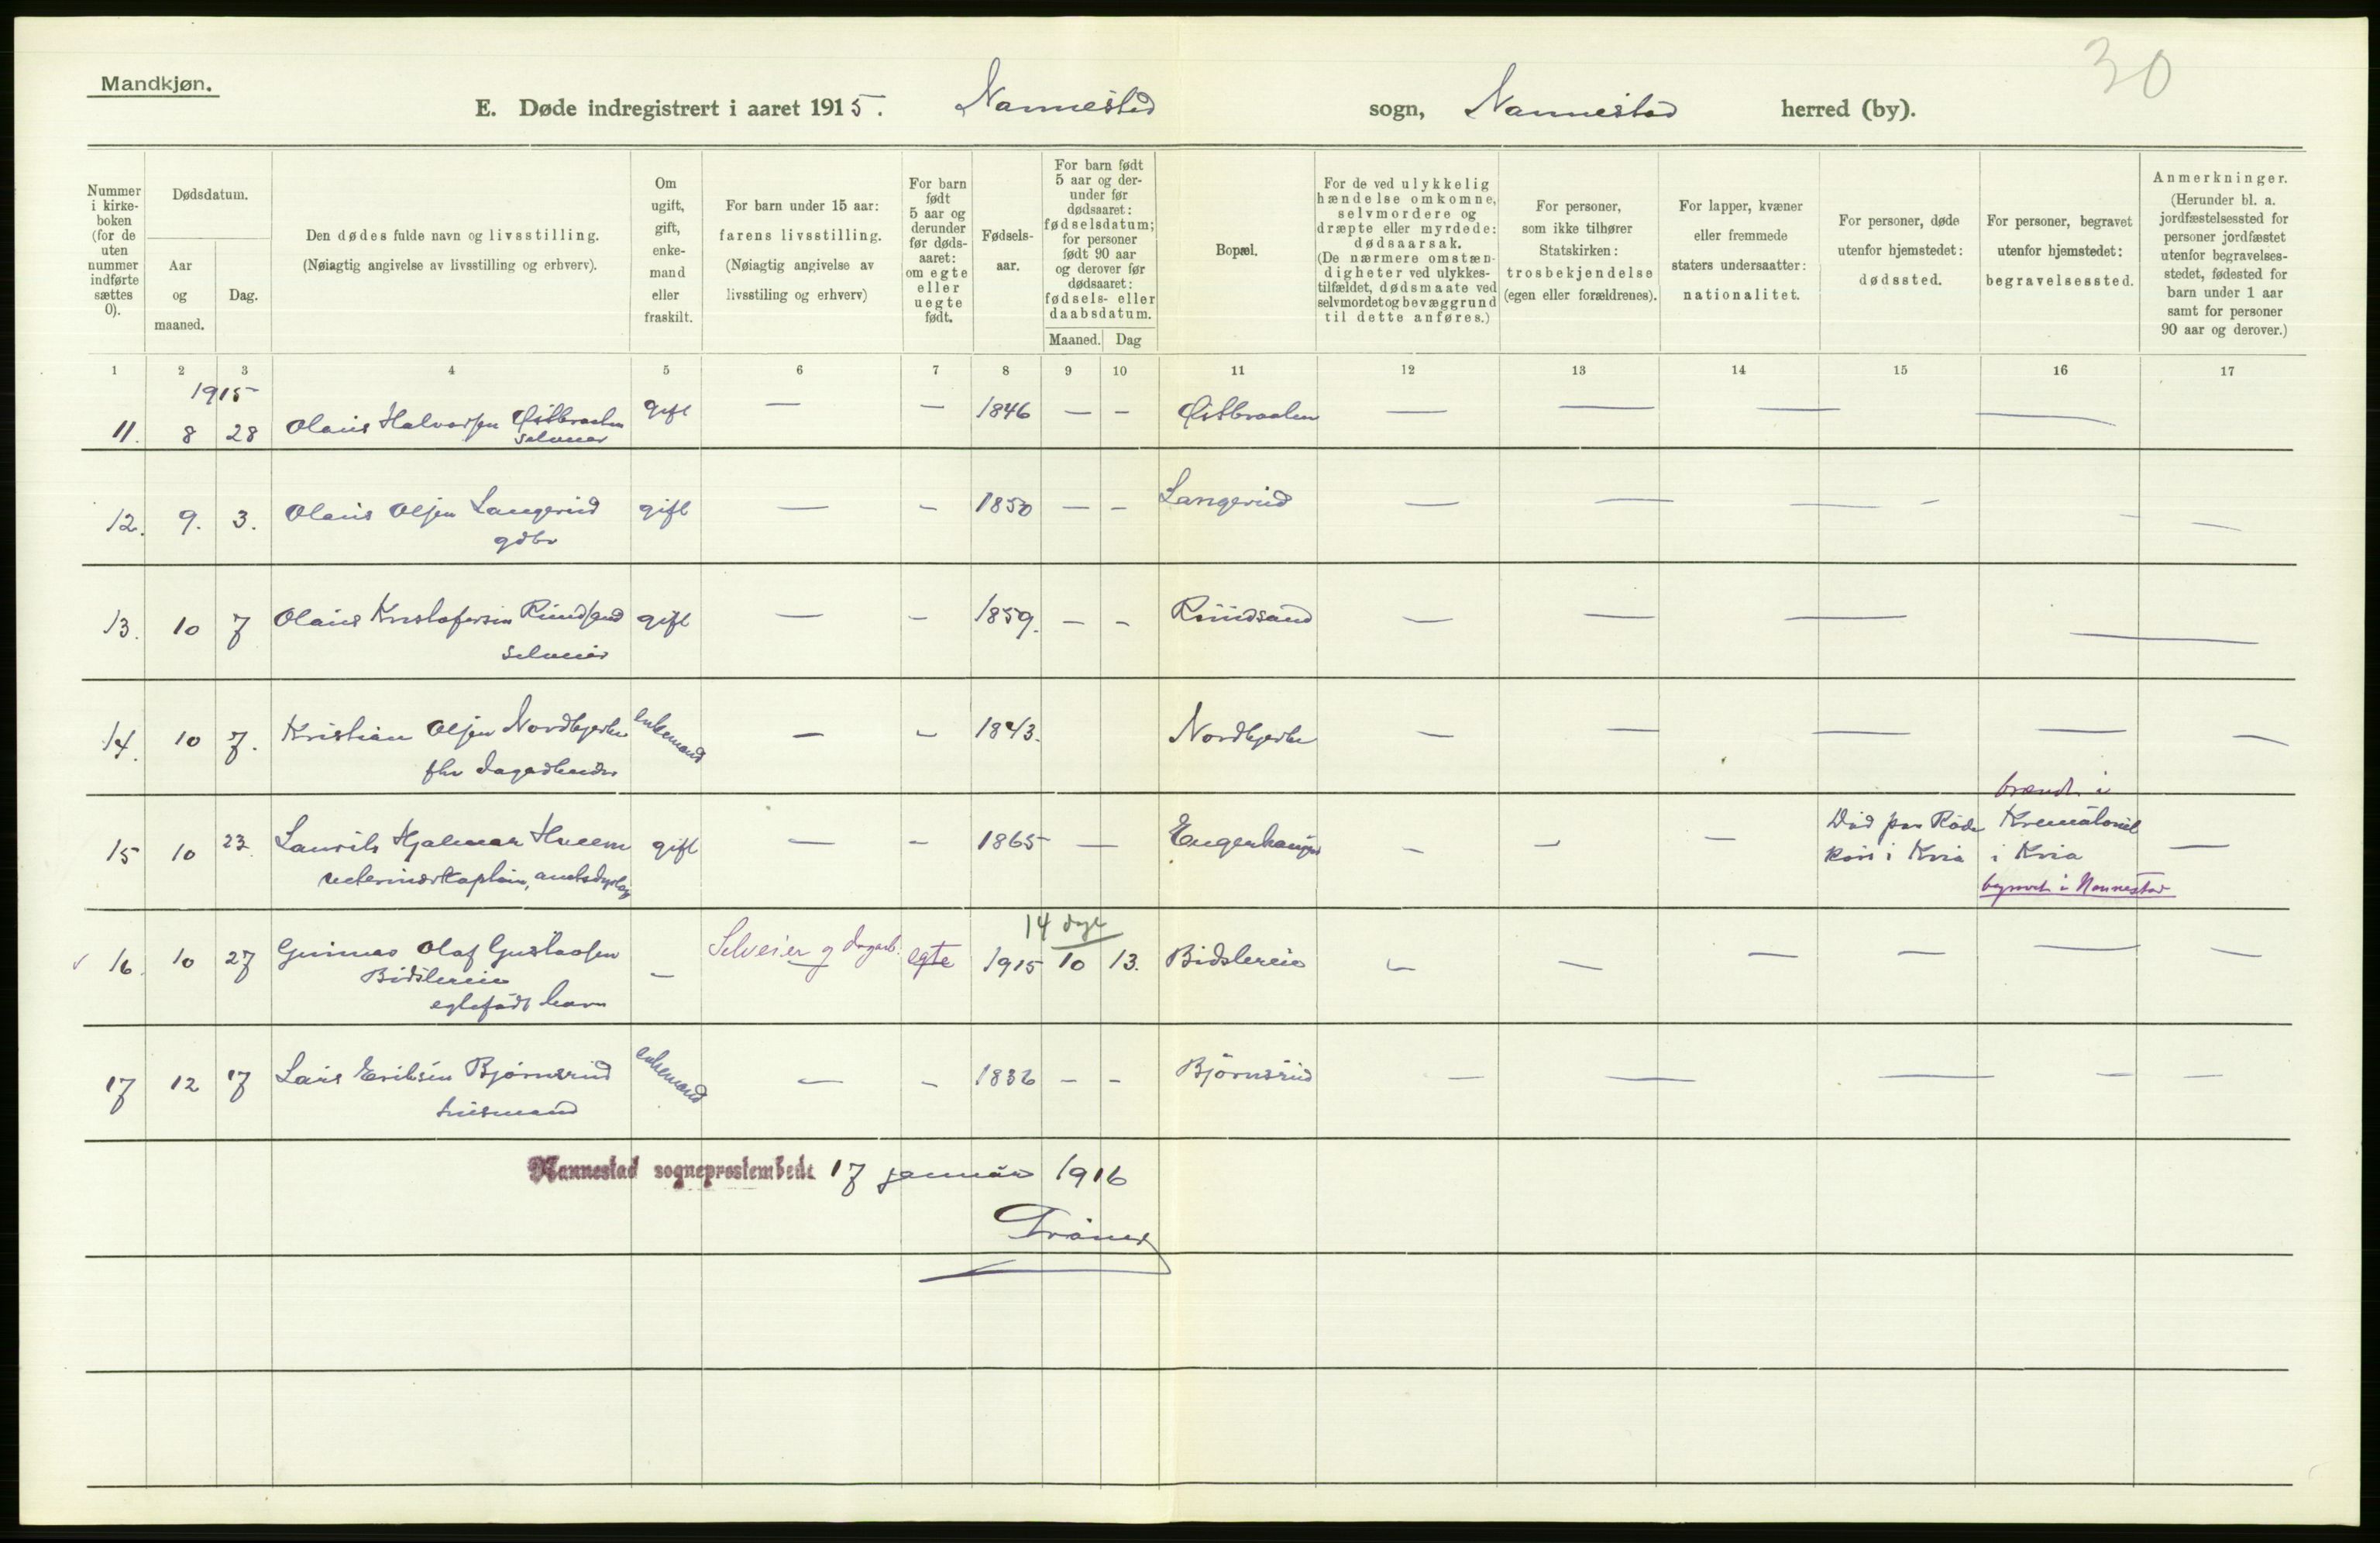 30
Mandkjøn.
E. Døde indregistrert i aaret 1915. Nannestad sogn, Nannestad herred (by).
Nummer i kirke-boken (for de uten nummer indførte sættes 0).
Dødsdatum.
Aar og maaned.
Dag.
Den dødes fulde navn og livsstilling.
(Nøiagtig angivelse av livsstilling og erhverv).
Om ugift, gift, enke-mand eller fraskilt.
For barn under 15 aar: farens livsstilling.
(Nøiagtig angivelse av livsstiling og erhverv)
For barn født 5 aar og derunder før døds-aaret: om egte eller uegte født.
Fødsels-aar.
For barn født 5 aar og der-under før dødsaaret: fødselsdatum; for personer født 90 aar og derover før dødsaaret: fødsels- eller daabsdatum.
Maaned. Dag
Bopæl.
For de ved ulykkelig hændelse omkomne, selvmordere og dræpte eller myrdede: dødsaarsak.
(De nærmere omstæn-digheter ved ulykkes-tilfældet, dødsmaate ved selvmordet og bevæggrund til dette anføres.)
For personer, som ikke tilhører Statskirken: trosbekjendelse (egen eller forældrenes).
For lapper, kvæner eller fremmede staters undersaatter: nationalitet.
For personer, døde utenfor hjemstedet: dødssted.
For personer, begravet utenfor hjemstedet: begravelsessted.
Anmerkninger.
(Herunder bl. a. jordfæstelsessted for personer jordfæstet utenfor begravelses-stedet, fødested for barn under 1 aar samt for personer 90 aar og derover.)
1 2 3 4 5 6 7 8 9 10 11 12 13 14 15 16 17
1915
11. 8 28 Olaus Halvorsen Østbraaten gift — — 1846 — — Østbraaten — — — —
selveier
12. 9. 3. Olaus Olsen Langerud gift — — 1850 — — Langerud — — — — — —
gdbr
13. 10 7 Olaus Kristofersen Rundsand gift — — 1859. — — Rundsand — — — —
selveier
14. 10 7. Kristian Olsen Nordbyeie enkemand — — 1843. Nordbyeie — — — — —
fhv
15 10 23. Laurits Hjalmar gift — — 1865 — — — — Død paa Røde Kors i Kria brændt i Krematoriet i Kria —
veterinærkaptein, amtsdyrlæge
begravet i Nannestad
14 dage
16. 10 27 Gunnar Olaf Gustavsen — Selveier og dagarb. egte 1915 10 13. Bidslereie — — — — — —
Bidslereie
egtefødt barn
17 12 17 Lars Eriksen Bjørnsrud enkemand — — 1836 — — Björnsrud — — — — —
husmand
Nannestad sogneprestembede 17 januar 1916